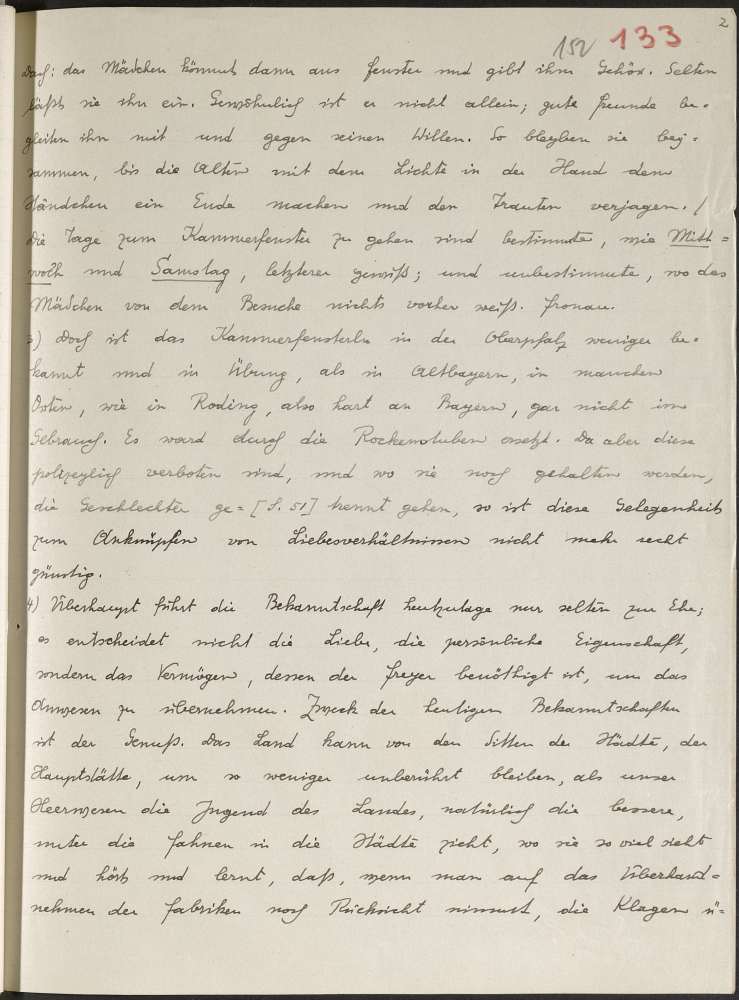 2
152 133
darf: das Mädchen kömmt dann ans Fenster und gibt ihm Gehör. Selten
läßt sie ihn ein. Gewöhnlich ist er nicht allein; gute Freunde be-
gleiten ihn mit und gegen seinen Willen. So bleyben sie bey-
sammen, bis die Alten mit dem Lichte in der Hand dem
Ständchen ein Ende machen und den Trauten verjagen. /
Die Tage zum Kammerfenster zu gehen sind bestimmte, wie Mitt-
woch und Samstag, letzterer gewiß; und unbestimmte, wo das
Mädchen von dem Besuche nichts vorher weiß. Fronau.
3) Doch ist das Kammerfensterln in der Oberpfalz weniger be-
kannt und in Übung, als in Altbayern, in manchen
Orten, wie in Roding, also hart an Bayern, gar nicht im
Gebrauch. Es ward durch die Rockenstuben ersetzt. Da aber diese
polizeylich verboten sind, und wo sie noch gehalten werden,
die Geschlechter ge= [S. 51] trennt gehen, so ist diese Gelegenheit
zum Anknüpfen von Liebesverhältnissen nicht mehr recht
günstig.
4) Überhaupt führt die Bekanntschaft heutzutage nur selten zur Ehe;
es entscheidet nicht die Liebe, die persönliche Eigenschaft,
sondern das Vermögen, dessen der Freyer benöthigt ist, um das
Anwesen zu übernehmen. Zweck der heutigen Bekanntschaften
ist der Genuß. Das Land kann von den Sitten der Städte, der
Hauptstätte, um so weniger unberührt bleiben, als unser
Heerwesen die Jugend des Landes, natürlich die bessere,
unter die Fahnen in die Städte zieht, wo sie so viel sieht
und hört und lernt, daß, wenn man auf das Überhand-
nehmen der Fabriken noch Rücksicht nimmt, die Klagen ü-